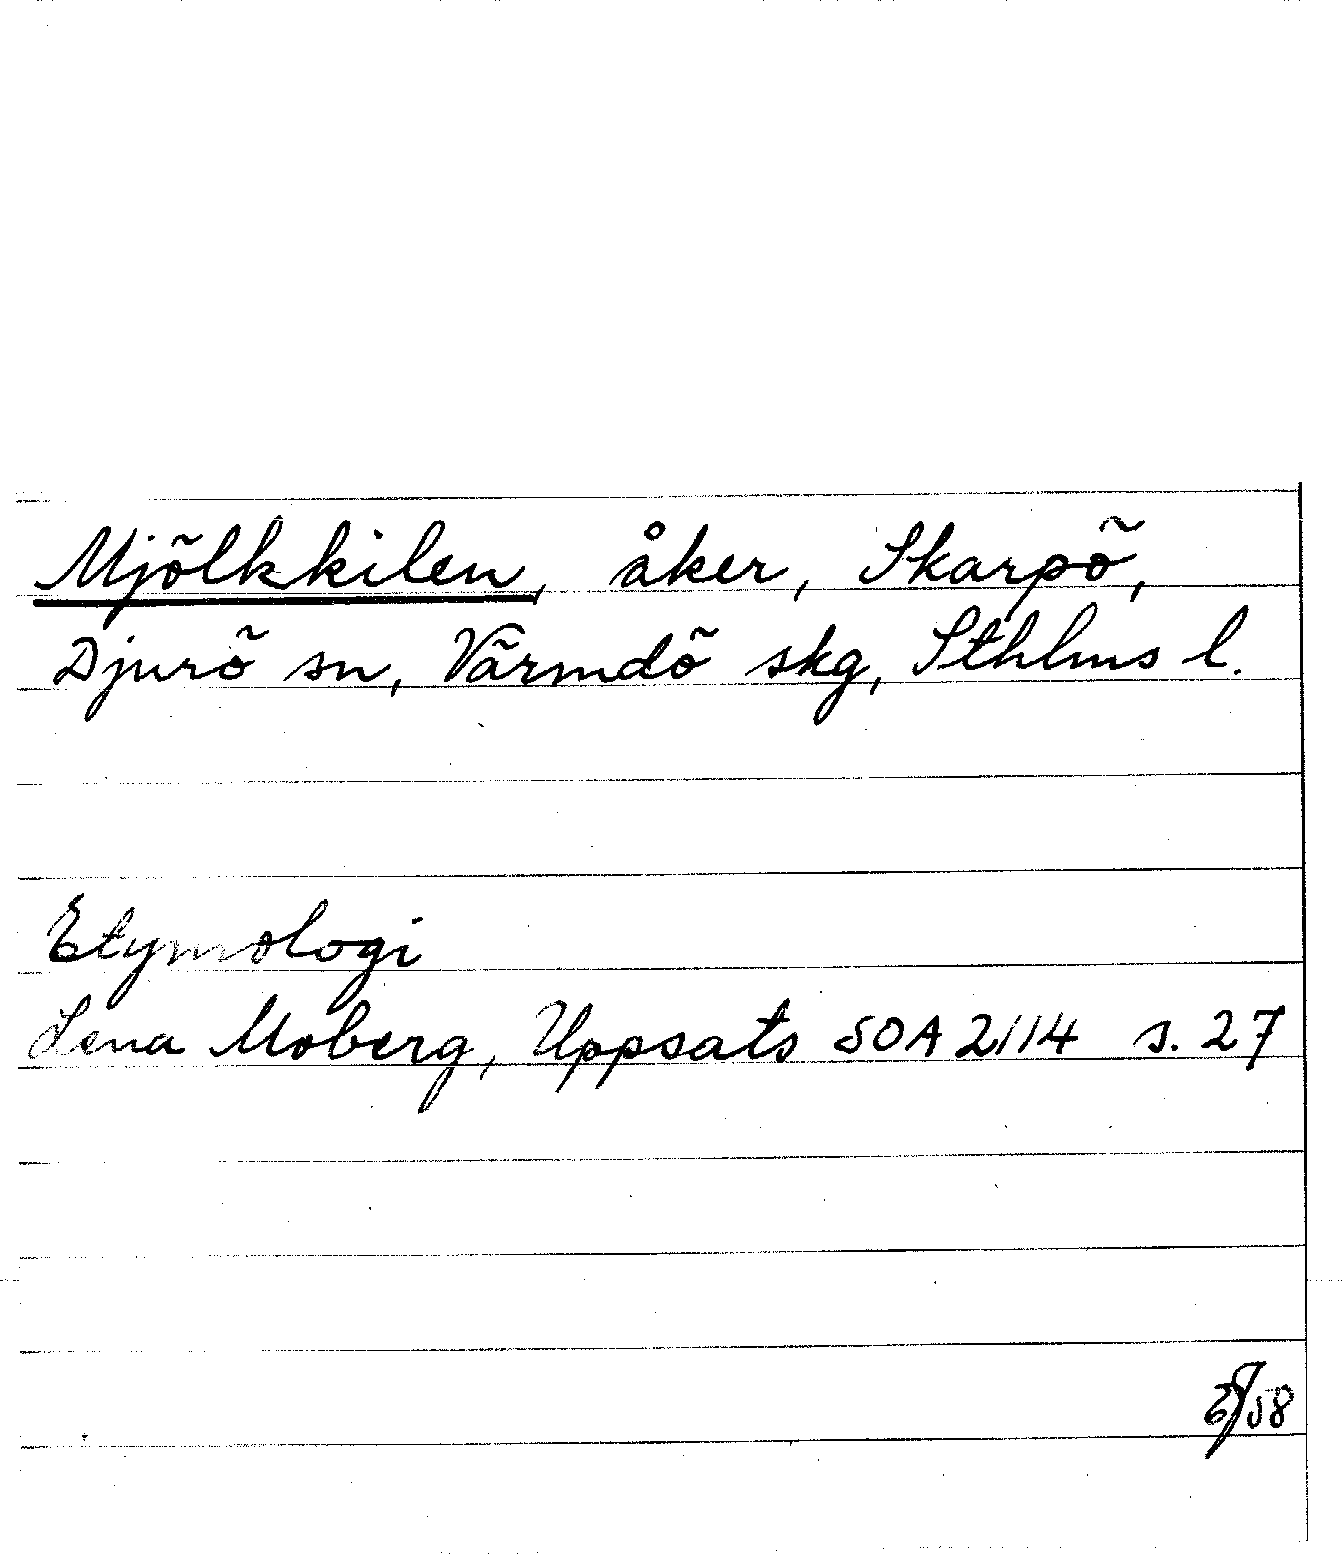 Mjölkkilen, åker, Skarpö,
Djurö sn, Värmdö skg, Sthlms l.
Etymologi
Lena Moberg, Uppsats SOA 2114 s. 27